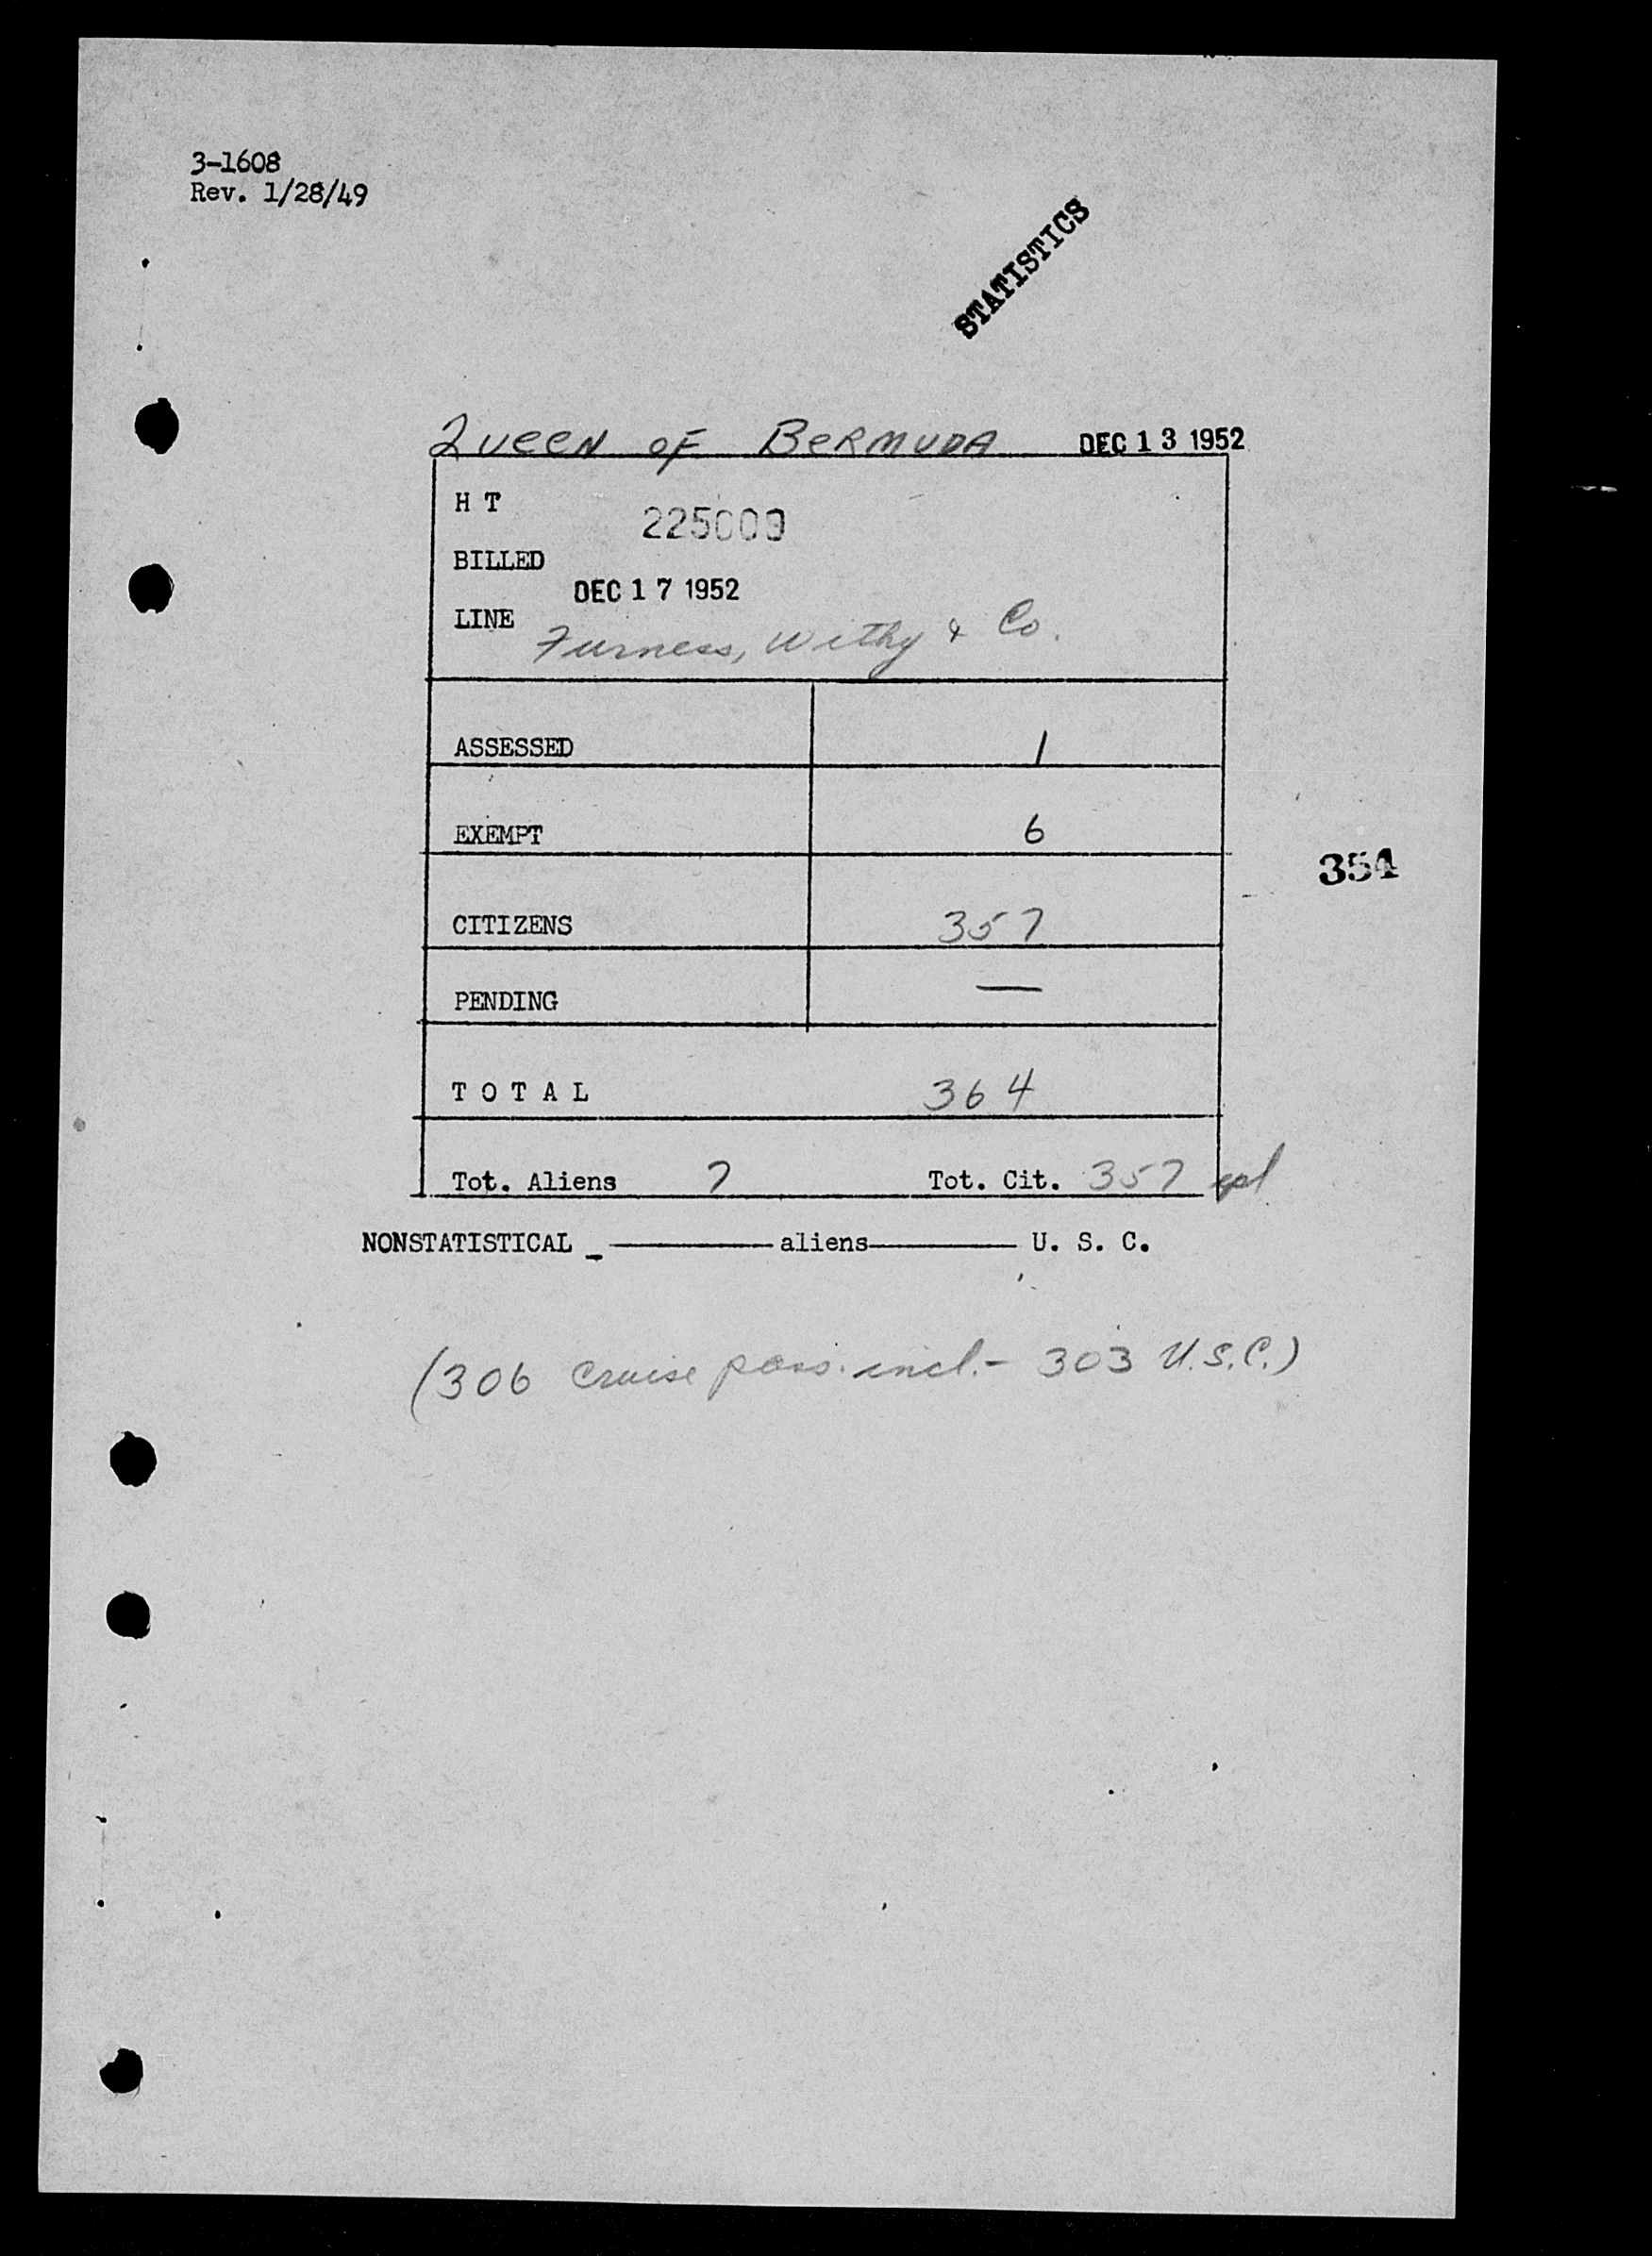 3-1608
Rev. 1/28/49
STATISTICS
QUEEN OF BERMUDA DEC 13 1952
H T 225009
BILLED DEC 17 1952
LINE Furness, Withy & Co.
ASSESSED 1
EXEMPT 6
354
CITIZENS 357
PENDING —
T O T A L 364
Tot. Aliens 7 Tot. Cit. 357
NONSTATISTICAL _ ———— aliens ———— U. S. C.
(306 cruise pass. incl. - 303 U.S.C.)